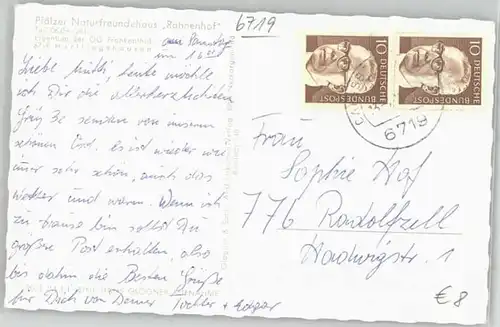 Pfälzer Naturfreundehaus „Rahnenhof"
6719
am Samstag
um 16 00
Liebe Mutti! heute möchte
ich Dir die allerherzlichsten
Grüße senden von unserem
schönen Ort. es ist wieder wie
immer sehr schön, auch das
Wetter und warm. Wenn ich
zu hause bin sollst Du
größere Post erhalten, also
bis dahin die Besten Grüße
für Dich von Deiner Tochter + Edgar
10
DEUTSCHE
BUNDESPOST
10
DEUTSCHE
BUNDESPOST
6719
Frau
Sophie Hof
776 Radolfzell
Hadwigstr. 1
€ 8